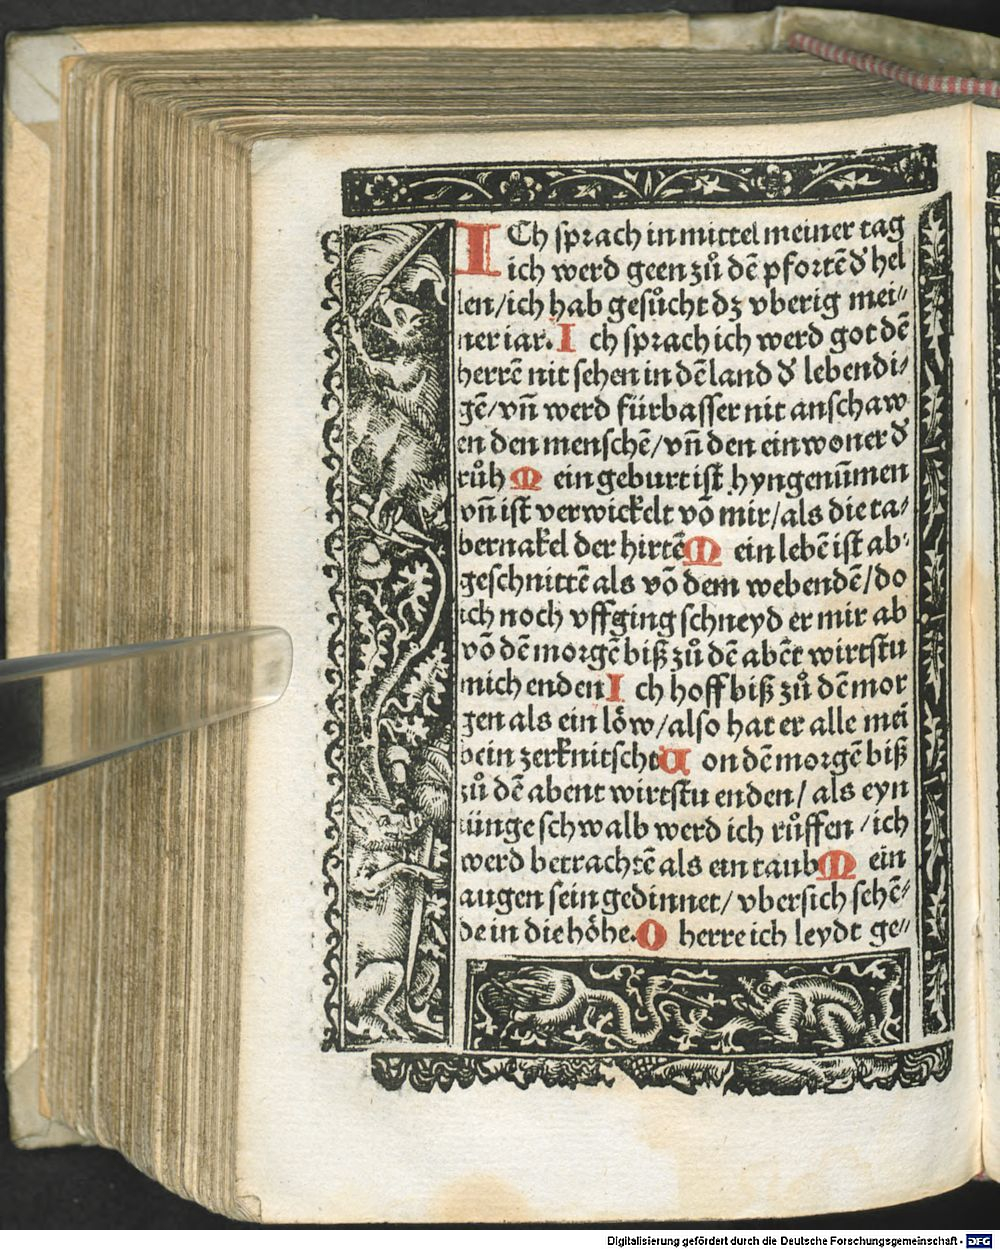 ICh sprach in mittel meiner tag
ich werd geen zů dē pfortē d' hel
len/ich hab gesůcht dz vberig mei⸗
ner iar. Ich sprach ich werd got dē
herrē nit sehen in dē land d' lebendi⸗
gē/vn̄ werd fürbasser nit anschaw
en den menschē/vn̄ den einwoner d'
růh Mein geburt ist hyngenūmen
vn̄ ist verwickelt vō mir/als die ta⸗
bernakel der hirtē Mein lebē ist ab⸗
geschnittē als vō dem webendē/do
ich noch vffging schneyd er mir ab
vō dē morgē biß zů dē abēt wirtstu
mich enden Ich hoff biß zů dē mor
gen als ein löw/also hat er alle mei
bein zerknitscht Von dē morgē biß
zů dē abent wirtstu enden/als eyn
iünge schwalb werd ich růffen/ich
werd betrachtē als ein taub Mein
augen sein gedinnet/vbersich sehē⸗
de in die höhe. O herre ich leydt ge⸗
Digitalisierung gefördert durch die Deutsche Forschungsgemeinschaft - DFG